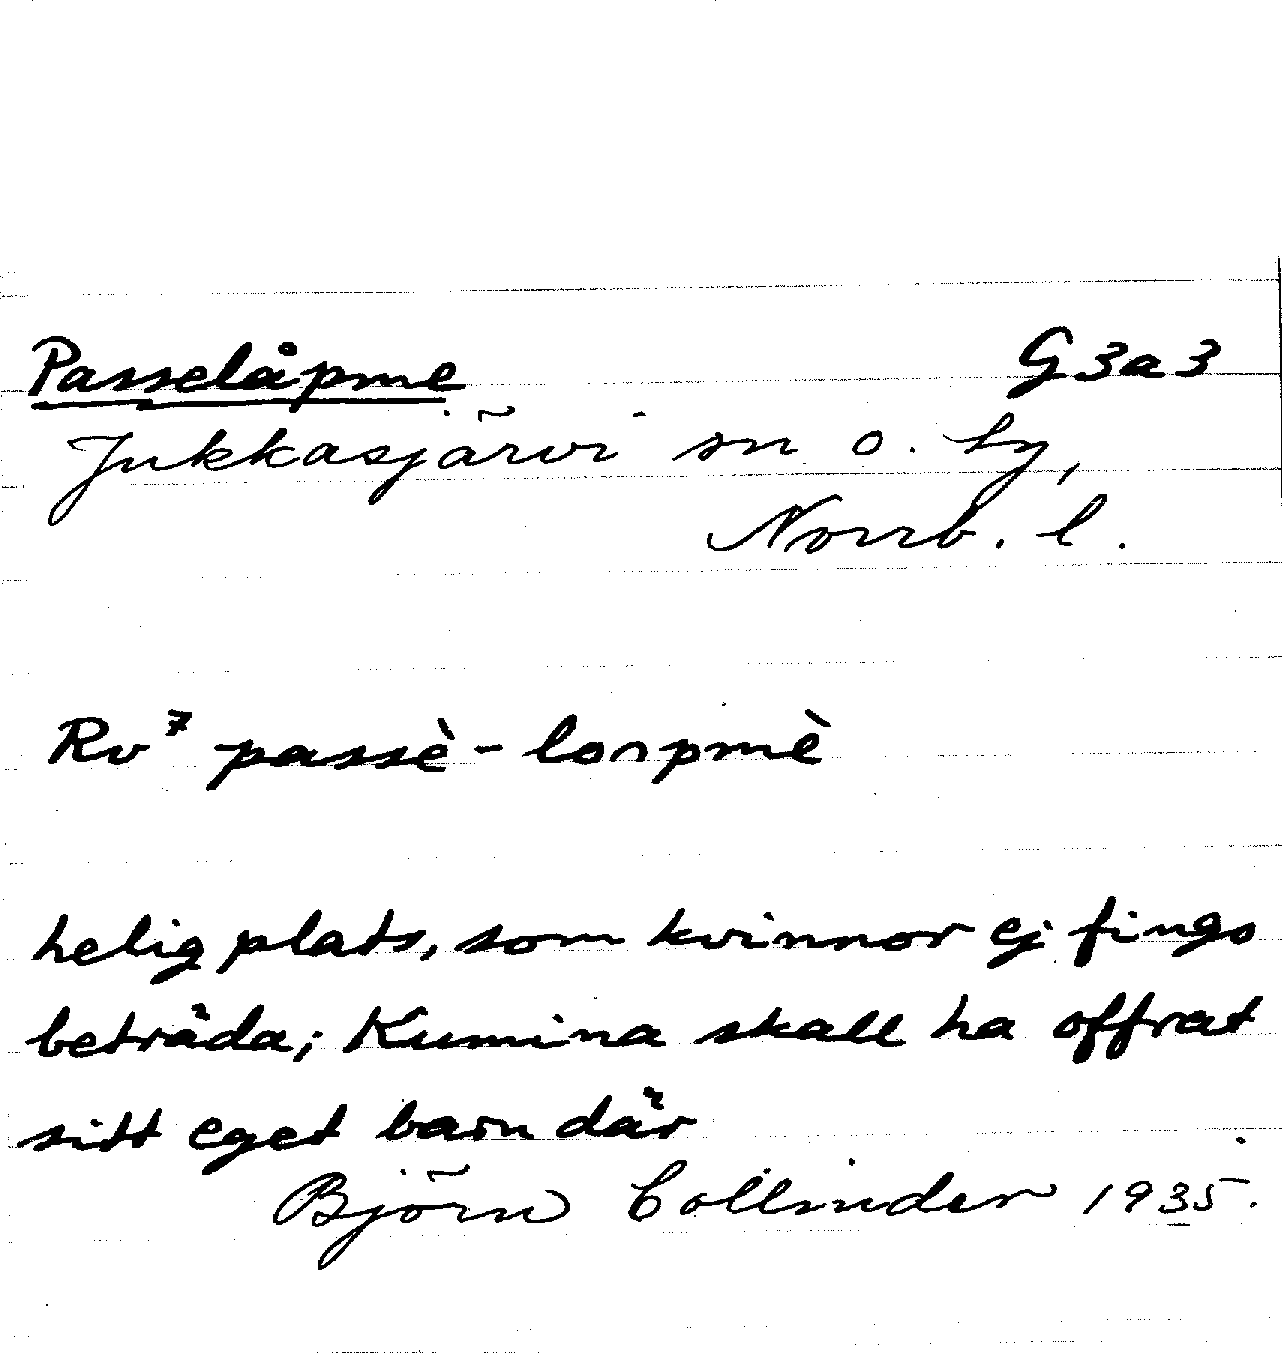 Passelåpme G3a3
Jukkasjärvi sn o. by,
Norrb. l.
Rv⁷ passè-loᴖpmè
helig plats, som kvinnor ej fingo
beträda; Kumina skall ha offrat
sitt eget barn där
Björn Collinder 1935.